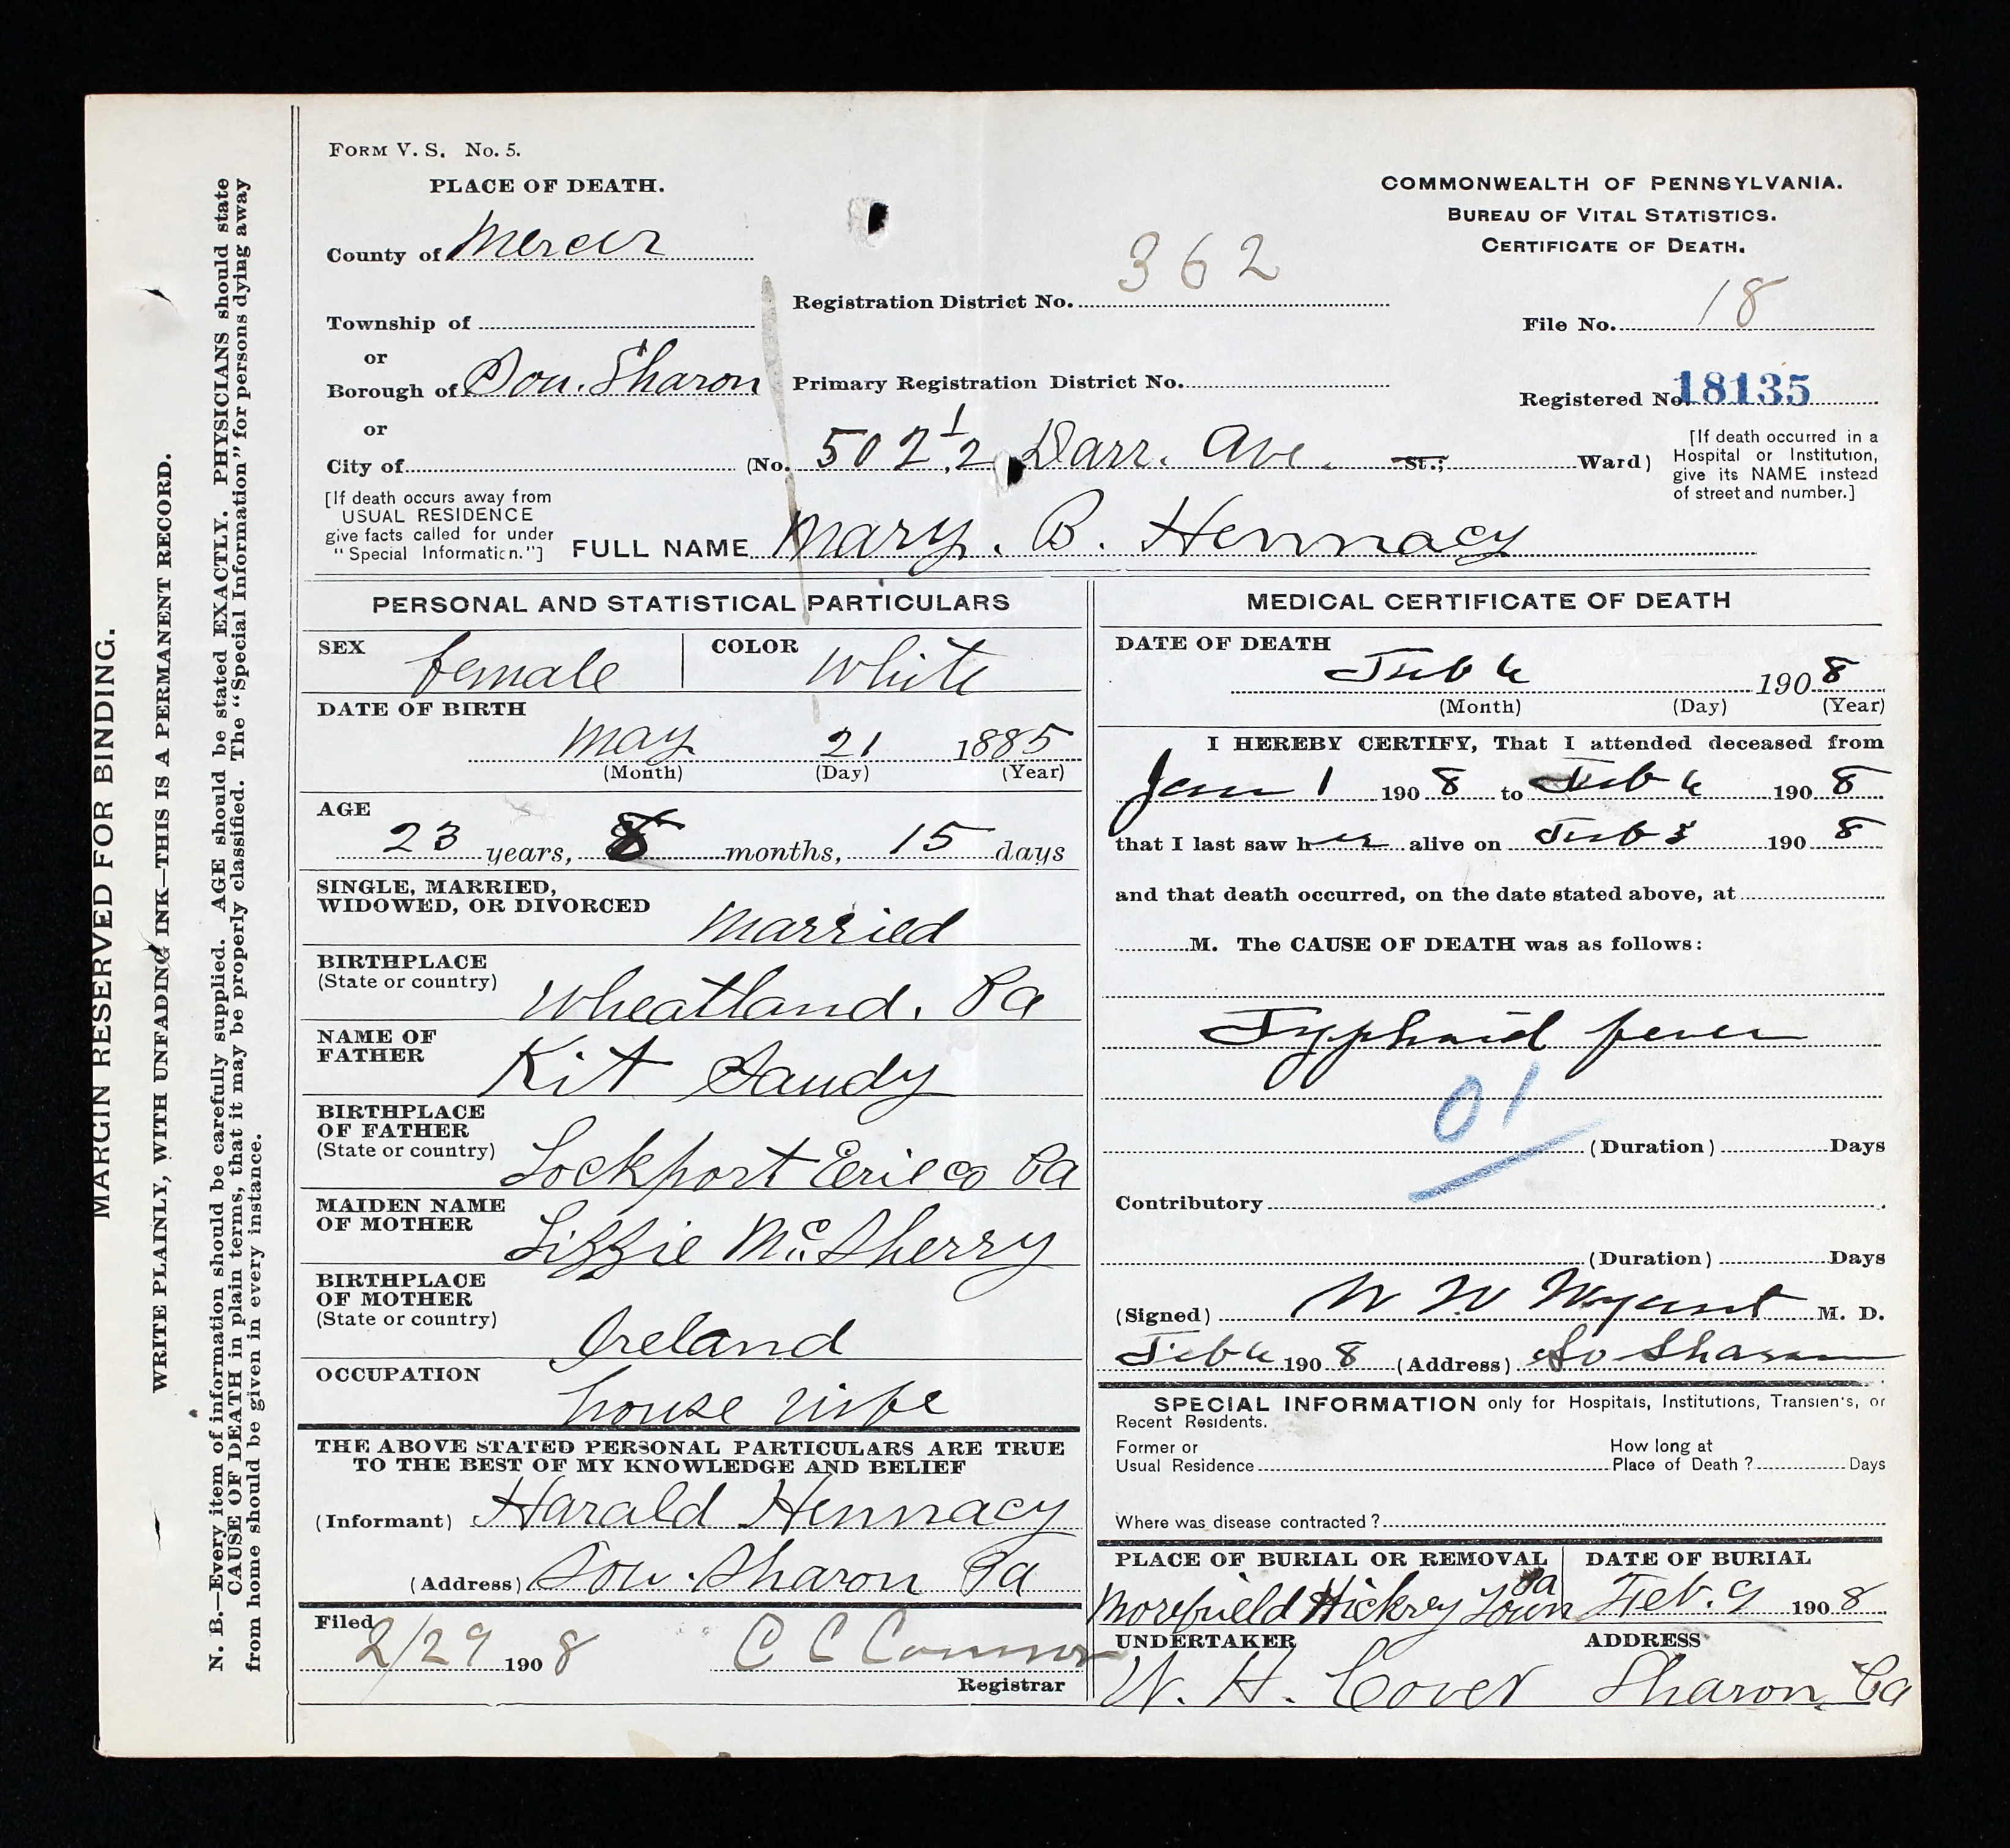 FORM V. S. No. 5.
PLACE OF DEATH.
County of Mercer
Township of
or
Borough of Sou. Sharon
or
City of
[If death occurs away from
USUAL RESIDENCE
give facts called for under
"Special Information."]
COMMONWEALTH OF PENNSYLVANIA.
BUREAU OF VITAL STATISTICS.
CERTIFICATE OF DEATH.
Registration District No. 362
File No. 18
Primary Registration District No.
Registered No. 18135
(No. 502 1/2 Darr. Ave. St.; Ward)
[If death occurred in a
Hospital or Institution,
give its NAME instead
of street and number.]
FULL NAME Mary. B. Hennacy
PERSONAL AND STATISTICAL PARTICULARS
SEX female COLOR White
DATE OF BIRTH
May 21 1885
(Month) (Day) (Year)
AGE
23 years, 8 months, 15 days
SINGLE, MARRIED,
WIDOWED, OR DIVORCED Married
BIRTHPLACE
(State or country) Wheatland. Pa
NAME OF
FATHER Kit
BIRTHPLACE
OF FATHER
(State or country) Lockport Erie co Pa
MAIDEN NAME
OF MOTHER Lizzie McSherry
BIRTHPLACE
OF MOTHER
(State or country) Ireland
OCCUPATION house wife
THE ABOVE STATED PERSONAL PARTICULARS ARE TRUE
TO THE BEST OF MY KNOWLEDGE AND BELIEF
(Informant) Harald Hennacy
(Address) Sou. Sharon Pa
Filed
2/29 1908 C C Connor
Registrar
MEDICAL CERTIFICATE OF DEATH
DATE OF DEATH
Feb 6 1908
(Month) (Day) (Year)
I HEREBY CERTIFY, That I attended deceased from
Jan 1 1908 to Feb 6 1908
that I last saw her alive on Feb 1908
and that death occurred, on the date stated above, at
M. The CAUSE OF DEATH was as follows:
Typhoid fever
01
(Duration) Days
Contributory
(Duration) Days
(Signed) W W Wyant M. D.
Feb 6 1908 (Address) So Sharon
SPECIAL INFORMATION only for Hospitals, Institutions, Transients, or
Recent Residents.
Former or
Usual Residence
How long at
Place of Death? Days
Where was disease contracted?
PLACE OF BURIAL OR REMOVAL
Morefield Hickory Town Pa
DATE OF BURIAL
Feb. 9 1908
UNDERTAKER
W. H. Cover
ADDRESS
Sharon, Pa
MARGIN RESERVED FOR BINDING.
WRITE PLAINLY, WITH UNFADING INK—THIS IS A PERMANENT RECORD.
N. B.—Every item of information should be carefully supplied. AGE should be stated EXACTLY. PHYSICIANS should state
CAUSE OF DEATH in plain terms, that it may be properly classified. The "Special Information" for persons dying away
from home should be given in every instance.